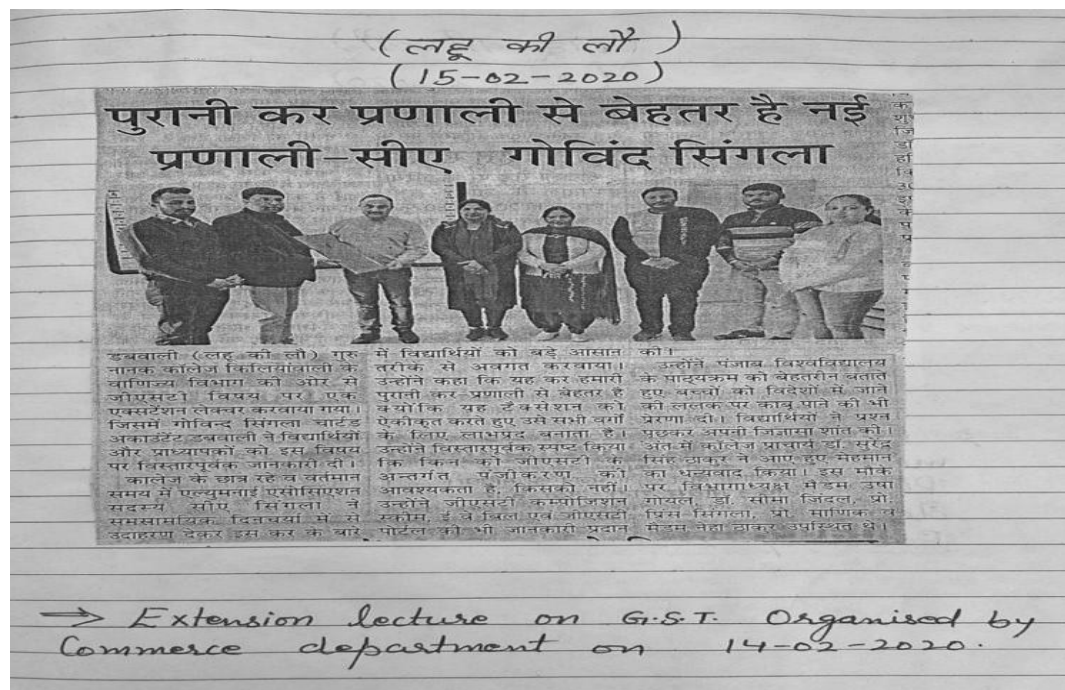 (लहू की लौ)
(15-02-2020)
पुरानी कर प्रणाली से बेहतर है नई
प्रणाली-सीए गोविंद सिंगला
डबवाली (लहू की लौ) गुरु
नानक कॉलेज किलियांवाली के
वाणिज्य विभाग की ओर से
जीएसटी विषय पर एक
एक्सटेंशन लेक्चर करवाया गया।
जिसमें गोविन्द सिंगला चार्टर्ड
अकाउंटेंट डबवाली ने विद्यार्थियों
और प्राध्यापकों को इस विषय
पर विस्तारपूर्वक जानकारी दी।
कॉलेज के छात्र रहे व वर्तमान
समय में एल्यूमनाई एसोसिएशन
सदस्य सीए सिंगला ने
समसामयिक दिनचर्या में से
उदाहरण देकर इस कर के बारे
में विद्यार्थियों को बड़े आसान
तरीके से अवगत करवाया।
उन्होंने कहा कि यह कर हमारी
पुरानी कर प्रणाली से बेहतर है
क्योंकि यह टैक्सेशन को
एकीकृत करते हुए उसे सभी वर्गों
के लिए लाभप्रद बनाता है।
उन्होंने विस्तारपूर्वक स्पष्ट किया
कि किन को जीएसटी के
अन्तर्गत पंजीकरण की
आवश्यकता है, किसको नहीं।
उन्होंने जीएसटी कम्पोजिशन
स्कीम, ई वे बिल एवं जीएसटी
पोर्टल की भी जानकारी प्रदान
की।
उन्होंने पंजाब विश्वविद्यालय
के पाठ्यक्रम को बेहतरीन बताते
हुए बच्चों को विदेशों में जाने
की ललक पर काबू पाने की भी
प्रेरणा दी। विद्यार्थियों ने प्रश्न
पूछकर अपनी जिज्ञासा शांत की।
अंत में कॉलेज प्राचार्य डॉ. सुरेंद्र
सिंह ठाकुर ने आए हुए मेहमान
का धन्यवाद किया। इस मौके
पर विभागाध्यक्ष मैडम उषा
गोयल, डॉ. सीमा जिंदल, प्रो.
प्रिंस सिंगला, प्रो. माणिक व
मैडम नेहा ठाकुर उपस्थित थे।
→ Extension lecture on G.S.T. Organised by
Commerce department on 14-02-2020.